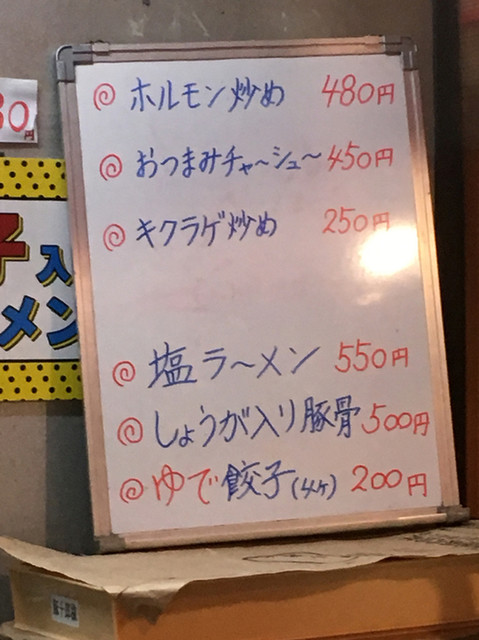 30円
子入
メン
ホルモン炒め 480円
おつまみチャ〜シュ〜 450円
キクラゲ炒め 250円
塩ラ〜メン 550円
しょうが入り豚骨 500円
ゆで餃子(4ヶ) 200円